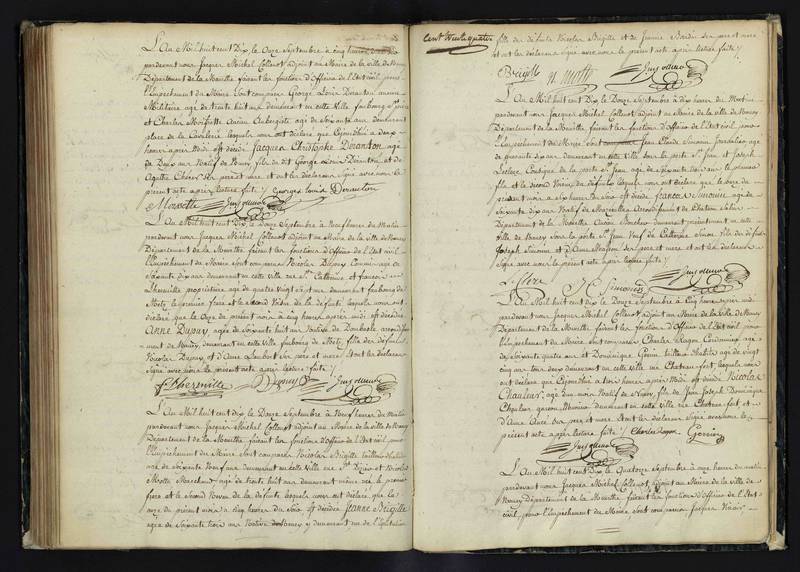 L'An Mil huit cent Dix, le Onze Septembre à cinq heures
pardevant nous Jacques Michel Collenot adjoint au Maire de la ville de Nancy
Département de la Meurthe faisant les fonctions d'Officier de l'Etat civil, pour
l'Empechement du Maire, sont comparus George Louis Deranton ancien
Militaire agé de trente huit ans demeurant en cette Ville faubourg St
et Charles Morissette Ancien Aubergiste agé de Soixante ans demeurant
place de la Cavalerie lesquels nous ont déclaré que Cejourdhui a deux
heures après Midi est décédé Jacques Christophe Deranton agé
de Deux ans Natif de Nancy fils du dit George Louis Deranton et de
Agathe ses pere et mere et ont les déclarans Signé avec nous le
présent acte après lecture faite /. Georges Louis Deranton
L'An Mil huit cent Dix, le Douze Septembre à Neuf heures du Matin
pardevant nous Jacques Michel Collenot adjoint au Maire de la ville de Nancy
Département de la Meurthe faisant les fonctions d'Officier de l'Etat civil
l'Empechement du Maire sont comparus Nicolas Dupuy Commis agé de
Soixante dix ans demeurant en cette ville rue Ste Catherine et francois
Lhermille propriétaire agé de quatre Vingt Sept ans demeurant faubourg de
Metz le premier frere et le Second Voisin de la défunte lesquels nous ont
déclaré que le Onze du présent mois à cinq heures après midi est décédée
Anne Dupuy agée de Soixante huit ans Native de Dombasle arrondisse
ment de Nancy, demeurant en cette Ville faubourg de Metz, fille des défunts
Nicolas Dupuy, et d'Anne Lambert Ses pere et mere et ont les déclarans
Signé avec nous le présent acte après lecture faite /.
Dupuy
L'An Mil huit cent Dix le Douze Septembre à Neuf heures du Matin
pardevant nous Jacques Michel Collenot adjoint au Maire de la ville de Nancy
Département de la Meurthe faisant les fonctions d'Officier de l'Etat civil, pour
l'Empechement du Maire Sont comparus Nicolas Brigitte
agé de Soixante Neuf ans demeurant en cette Ville rue St Dizier et Nicolas
Motte Marchand agé de trente huit ans demeurant même rue, le premier
frere et le Second Neveu de la défunte lesquels nous ont déclaré que le
onze du présent mois à cinq heures du Soir est décédée Jeanne Brigitte
agée de Soixante trois ans Native de Nancy y demeurant rue de
Cent trente quatre
fille des défunts Nicolas Brigitte et de Jeanne Bardin Ses pere et mere
et ont les déclarans Signé avec nous le présent acte après lecture faite /.
L'An Mil huit cent Dix le Douze Septembre à dix heures du Matin
pardevant nous Jacques Michel Collenot adjoint au Maire de la ville de Nancy
Département de la Meurthe faisant les fonctions d'Officier de l'Etat civil, pour
l'Empechement du Maire Sont comparus Jean Claude Simonin Journalier agé
de quarante six ans demeurant en cette ville porte St Jean et Joseph
Leclerc porte St Jean agé de Soixante deux ans le premier
fils et le Second Voisin du défunt lesquels nous ont déclaré que le onze du
présent mois a six heures du Soir est décédé francois Simonin agé de
Soixante dix ans Natif de Arrondissement de Chateau Salins
Département de la Meurthe Ancien demeurant présentement en cette
Ville de Nancy porte St Jean Veuf de Catherine fils des défunts
Joseph Simonin et d'Anne Ses pere et mere et ont les déclarans
Signé avec nous le présent acte après lecture faite /.
Simonin
L'An Mil huit cent Dix, le Douze Septembre à cinq heures après midi
pardevant nous Jacques Michel Collenot adjoint au Maire de la Ville de Nancy
Département de la Meurthe faisant les fonctions d'Officier de l'Etat civil pour
l'Empechement du Maire, sont comparus Charles Cordonnier agé
de Soixante quatre ans et Dominique Gonin tailleur d'habits agé de vingt
cinq ans tous deux demeurant en cette ville rue Chateau fort lesquels nous
ont déclaré que Cejourdhui à trois heures après Midi est décédé Nicolas
Chauleur, agé d'un mois Natif de Nancy, fils de Jean Joseph Dominique
Chauleur garcon demeurant en cette Ville rue Chateau fort et
d'Anne Ses pere et mere et ont les déclarans Signé avec nous le
présent acte après lecture faite /.
L'An Mil huit cent Dix, le Quatorze Septembre à onze heures du matin
pardevant nous Jacques Michel Collenot adjoint au Maire de la ville de
Nancy Département de la Meurthe faisant les fonctions d'Officier de l'Etat
civil, pour l'Empechement du Maire, sont comparus Jacques